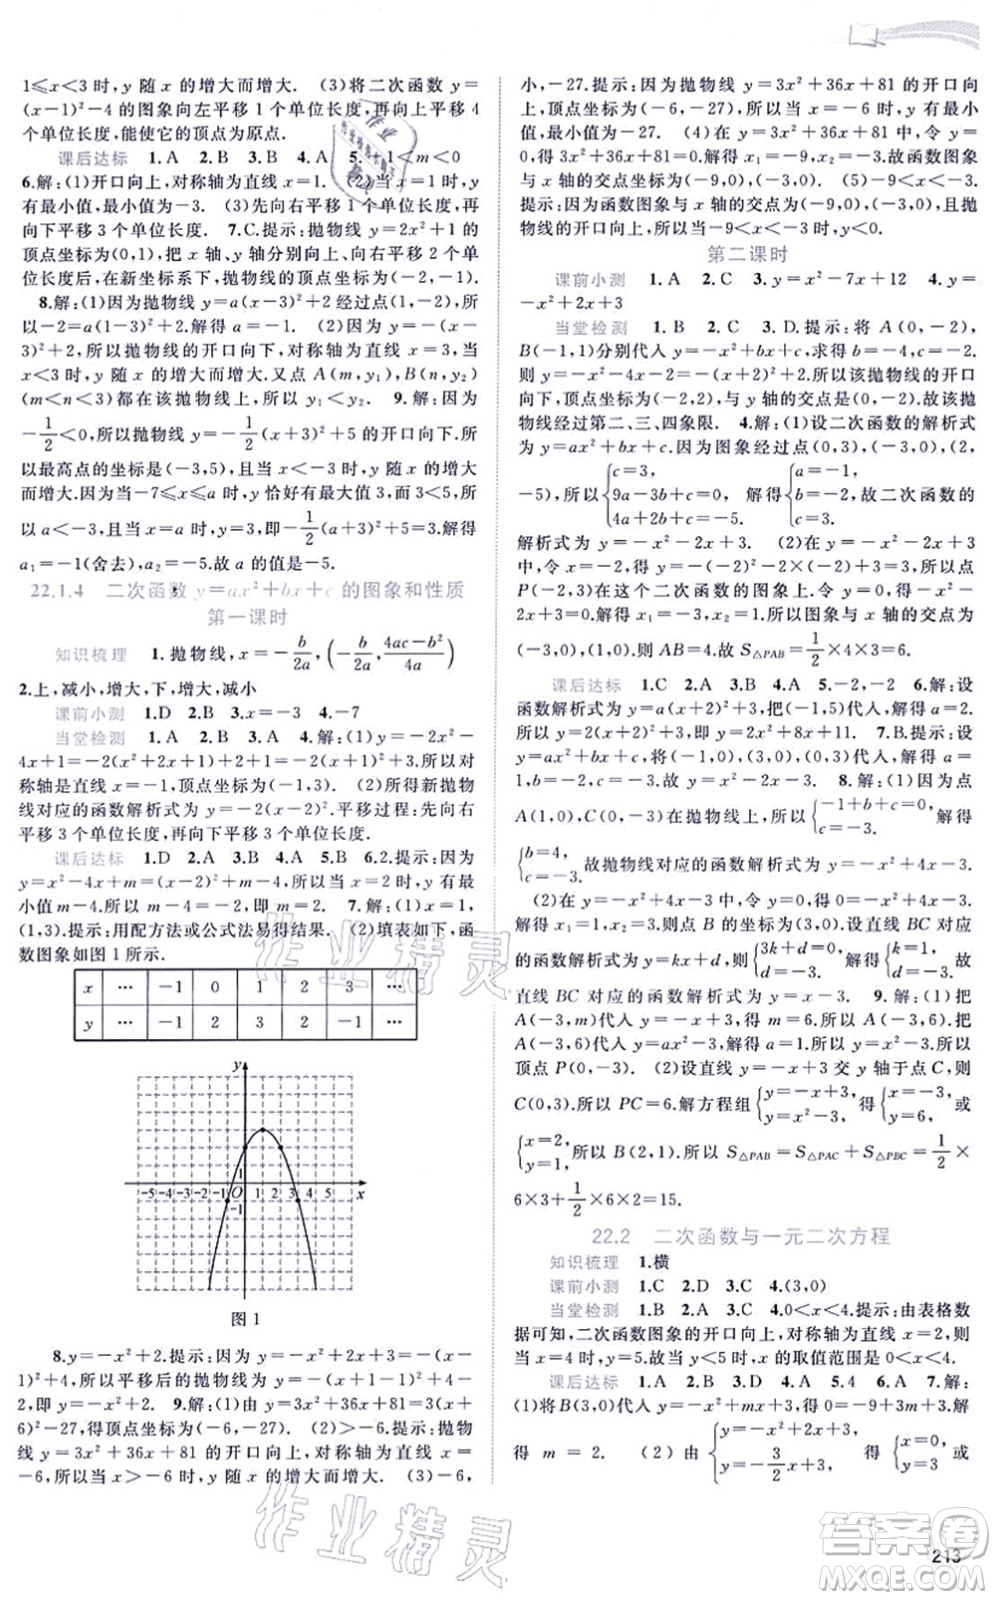 1≤x<3 时, y 随 x 的增大而增大. (3)将二次函数 y=
(x-1)²-4 的图象向左平移 1 个单位长度,再向上平移 4
个单位长度,能使它的顶点为原点.
课后达标 1.A 2.B 3.B 4.A 5.-1<m<0
6.解:(1)开口向上,对称轴为直线 x=1. (2)y
有最小值,最小值为-3. (3)先向右平移 1 个单位长度,
再向下平移 3 个单位长度. 7.C.提示:抛物线 y=2x²+1 的
顶点坐标为(0,1),把 x 轴、y 轴分别向上、向右平移 2 个单
位长度,在新坐标系下,抛物线的顶点坐标为(-2,-1).
8.解:(1)因为抛物线 y=a(x-3)²+2 经过点(1,-2),所
以-2=a(1-3)²+2.解得 a=-1. (2)因为抛物线 y=-(x-
3)²+2,所以抛物线的开口向下,对称轴为直线 x=3,当 x<3
时,y 随 x 的增大而增大.又点 A(m,y₁),B(n,y₂)
(m<n<3)都在该抛物线上,所以 y₁<y₂. 9.解:因为
-1/2<0,所以抛物线 y=-1/2(x+3)²+5 的开口向下.所
以最高点的坐标是(-3,5),且当 x<-3 时,y 随 x 的增大
而增大.因为当-7≤x≤a 时,y 恰好有最大值 3,所
以 a<-3,且当 x=a 时,y=3,即-1/2(a+3)²+5=3.解得
a₁=-1(舍去),a₂=-5.故 a 的值是-5.
22.1.4 二次函数 y=ax²+bx+c 的图象和性质
第一课时
知识梳理 1.抛物线,x=-b/2a,(-b/2a,(4ac-b²)/4a)
2.上,减小,增大,下,增大,减小
课前小测 1.D 2.B 3.x=-3 4.-7
当堂检测 1.A 2.B 3.A 4.解:(1)y=-2x²-
4x+1=-2(x²+2x+1)+2+1=-2(x+1)²+3,所以对
称轴是直线 x=-1,顶点坐标为(-1,3). (2)所求新抛物
线对应的函数解析式为 y=-2(x-2)².平移过程:先向右
平移 3 个单位长度,再向下平移 3 个单位长度.
课后达标 1.D 2.A 3.B 4.A 5.B 6.2.提示:因为
y=x²-4x+m=(x-2)²+m-4,所以当 x=2 时,y 有最
小值 m-4.所以 m-4=-2,即 m=2. 7.解:(1)x=1,
(1,3).提示:用配方法或公式法易得结果. (2)填表如下,函
数图象如图 1 所示.
x … -1 0 1 2 3 …
y … -1 2 3 2 -1 …
y
1
-5-4-3-2-1 O 1 2 3 4 5 x
-1
图 1
8.y=-x²+2.提示:因为 y=-x²+2x+3=-(x-
1)²+4,所以平移后的抛物线为 y=-(x+1-1)²+4-2=
-x²+2. 9.解:(1)由 y=3x²+36x+81=3(x+6)²-
27,得顶点坐标为(-6,-27). (2)>-6.提示:抛物
线 y=3x²+36x+81 的开口向上,对称轴为直线 x=
-6,所以当 x>-6 时,y 随 x 的增大而增大. (3)-6,
小,-27.提示:因为抛物线 y=3x²+36x+81 的开口向
上,顶点坐标为(-6,-27),所以当 x=-6 时,y 有最小
值为-27. (4)在 y=3x²+36x+81 中,令 y=0,得
0=3x²+36x+81.解得 x₁=-9,x₂=-3.故函数图象
与 x 轴的交点坐标为(-9,0),(-3,0). (5)-9<x<-3.提
示:因为函数图象与 x 轴的交点为(-9,0),(-3,0),且抛
物线的开口向上,所以当 y<0 时,-9<x<-3.
第二课时
课前小测 1.A 2.C 3.y=x²-7x+12 4.y=
-x²+2x+3
当堂检测 1.B 2.C 3.D.提示:将 A(0,-2),
B(-1,1)分别代入 y=x²+bx+c,求得 b=-4,c=-2.
则 y=-x²-4x-2=-(x+2)²+2.所以抛物线的开口
向下,顶点坐标为(-2,2),与 y 轴的交点是(0,-2).故该抛
物线经过第二、三、四象限. 4.解:(1)设二次函数的解析式
为 y=ax²+bx+c.因为图象经过点(0,3),(-3,0),(2,
-5),所以{c=3, 9a-3b+c=0, 4a+2b+c=-5. 解得{a=-1, b=-2, c=3, 故二次函数的
解析式为 y=-x²-2x+3. (2)因为-(-2)²-2×(-2)+3=3,所以点
P(-2,3)在这个二次函数的图象上.因为-x²-2x+3=
0,解得 x₁=-3,x₂=1,所以图象与 x 轴的交点为
(-3,0),(1,0),则 AB=4.故 S△PAB=1/2×4×3=6.
课后达标 1.C 2.A 3.B 4.A 5.-2,-2 6.解:设
函数解析式为 y=a(x+2)²+3.把(-1,5)代入,解得 a=2.
所以 y=2(x+2)²+3=2x²+8x+11. 7.B.提示:设
y=a(x-1)(x+3),把(0,-3)代入,解得 a=
1,b=2,c=-3.故 y=x²+2x-3. 8.解:(1)因为
点 A(1,0),C(0,-3)在抛物线上,所以{-1+b+c=0, c=-3. 解得
{b=4, c=-3. 故抛物线对应的函数解析式为 y=-x²+4x-3.
(2)在 y=-x²+4x-3 中,令 y=0,得-x²+4x-3=0.
解得 x₁=1,x₂=3.则点 B 的坐标为(3,0).设直线 BC 对应
的函数解析式为 y=kx+d,则{3k+d=0, d=-3. 解得{k=1, d=-3. 故
直线 BC 对应的函数解析式为 y=x-3. 9.解:(1)把
A(-3,m)代入 y=-x+3,得 m=6.所以 A(-3,6).把
A(-3,6)代入 y=ax²-2x-3,得 a=1.所以
顶点 P(0,-3). (2)设直线 y=-x+3 交 y 轴于点 C,则
C(0,3).所以 PC=6.解方程组{y=-x+3, y=x²-3, 得{x=-3, y=6, 或
{x=2, y=1. 所以 B(2,1).所以 S△PAB=S△PAC+S△PBC=1/2×
6×3+1/2×6×2=15.
22.2 二次函数与一元二次方程
知识梳理 1.横
课前小测 1.C 2.D 3.C 4.(3,0)
当堂检测 1.B 2.A 3.C 4.0<x<4.提示:由表格数
据可知,二次函数图象的开口向上,对称轴为直线 x=2,则
当 x=4 时,y=5.故当 y<5 时,x 的取值范围是 0<x<4.
课后达标 1.A 2.C 3.A 4.A 5.4 6.A 7.解:
(1)将 B(3,0)代入 y=-x²+mx+3,得 0=-9+3m+3.解
得 m=2. (2)由{y=-x²+2x+3, y=-3/2x+3, 得{x=0, y=3 或
213
作业精灵
作业精灵
答案圈
MXQE.COM